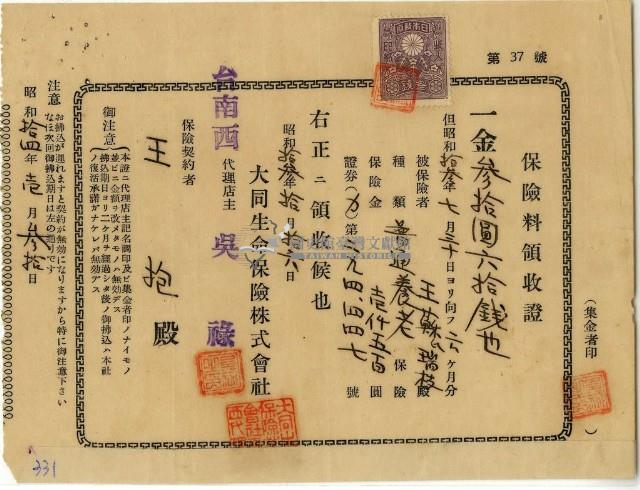 第 37 號
保險料領收證
(集金者印)
一金參拾圓六拾錢也
但昭和拾參年七月三十日ヨリ向フ六ヶ月分
被保險者 王蘇氏瑞枝殿
種類 養老保險
保險金 壹仟五百圓
證券 號
右正ニ領收候也
昭和拾參年拾月拾六日
大同生命保險株式會社
台南西 代理店主 吳祿
保險契約者
王抱殿
御注意
本證ニ代理店主記名調印及ビ集金者印ノナイモノ
並ビニ金額ヲ改メタモノハ無効デス
拂込期日ヨリ二ケ月ヲ經過シタ後ノ御拂込ハ本社
ノ復活承諾ガナケレバ無効デス
注意 お拂込が遲れますと契約が無効になりますから特に御注意下さい
なほ次回御拂込期日は左の通りです
昭和拾四年壱月參拾日
TAIWAN HISTORICA
331